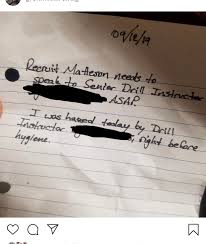 Recruit Matteson needs to
speak to Senior Drill Instructor
ASAP.
I was hazed today by Drill
Instructor , right before
hygiene.